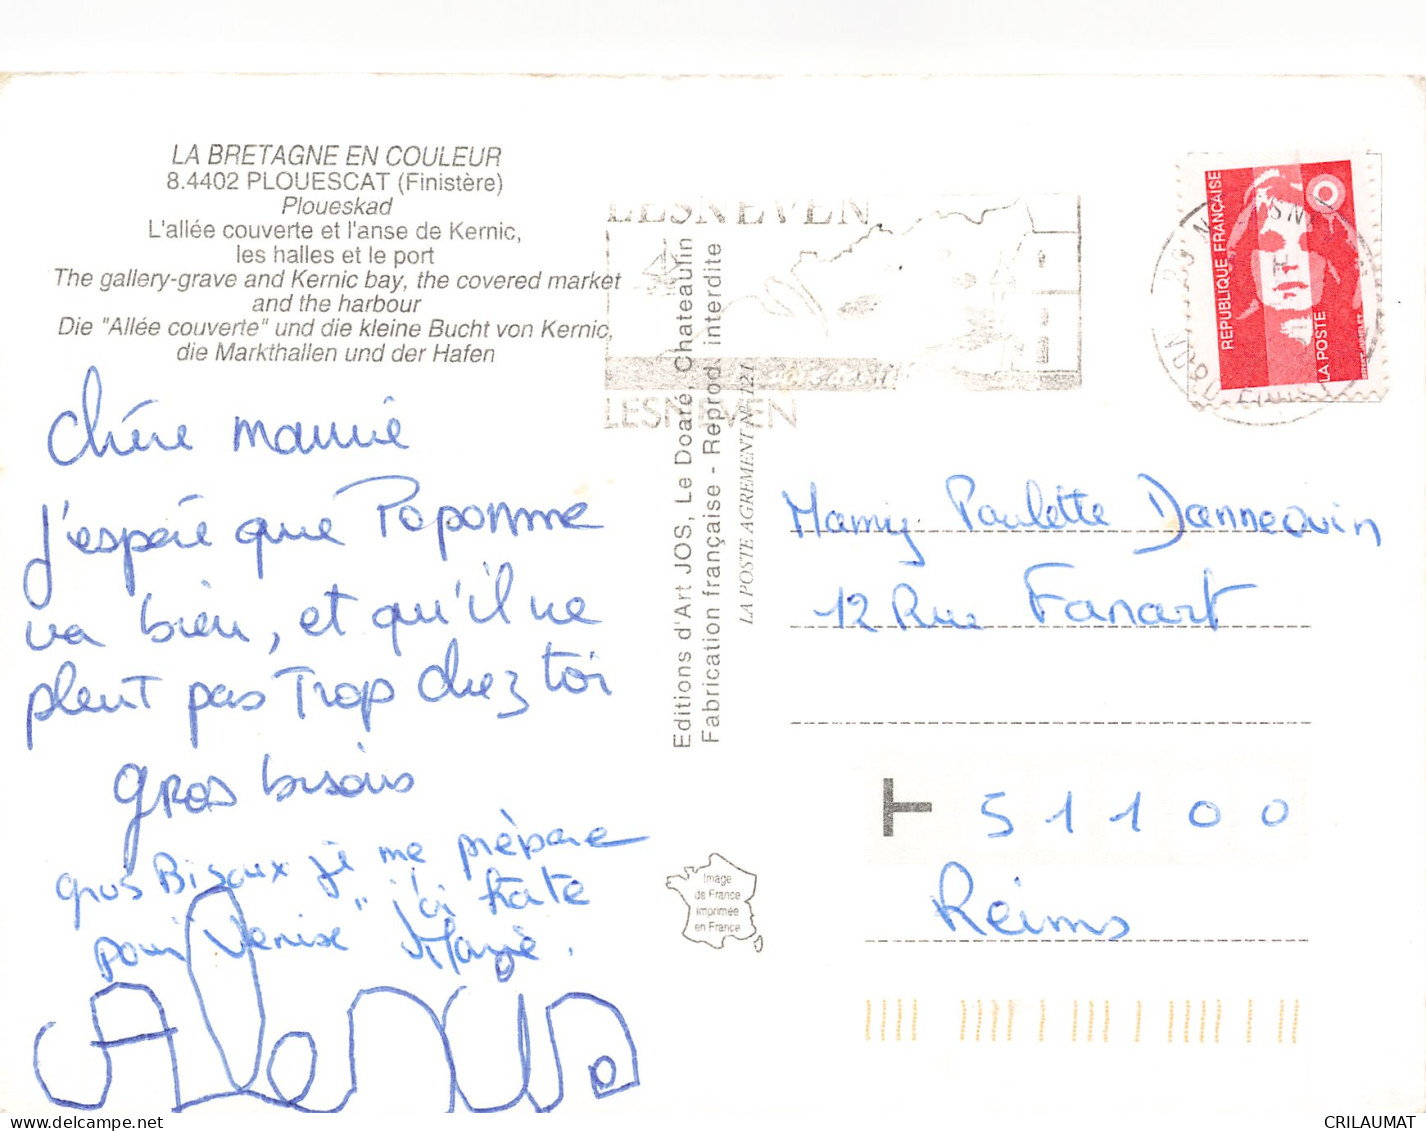 LA BRETAGNE EN COULEUR
8.4402 PLOUESCAT (Finistère)
Ploueskad
L'allée couverte et l'anse de Kernic,
les halles et le port
The gallery-grave and Kernic bay, the covered market
and the harbour
Die "Allée couverte" und die kleine Bucht von Kernic,
die Markthallen und der Hafen
chère mamie
j'espère que Poponme
va bien, et qu'il ne
pleut pas trop chez toi
gros bisous
gros Bisoux je me prépare
pour "Venise" j'ai hate
Marie.
LESNEVEN
LESNEVEN
Editions d'Art JOS, Le Doaré, Chateaulin
Fabrication française - Reprod. interdite
LA POSTE AGREMENT N° 121
REPUBLIQUE FRANÇAISE
LA POSTE
Mamy Paulette Dannequin
12 Rue Fanart
T 51100
Reims
Image
de France
imprimée
en France
CRILAUMAT